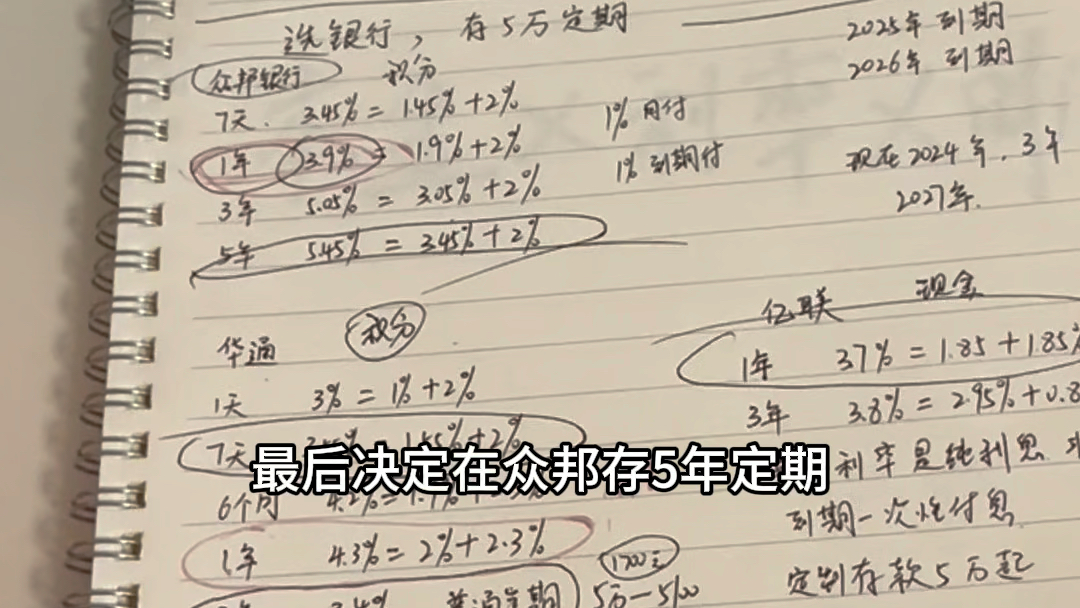 选银行，存5万定期
众邦银行 积分
7天. 3.45% = 1.45% + 2%
1年 3.9% = 1.9% + 2%
3年 5.05% = 3.05% + 2%
5年 5.45% = 3.45% + 2%
1% 月付
1% 到期付
2025年到期
2026年到期
现在2024年，3年
2027年.
华通 积分
1天 3% = 1% + 2%
7天
6个月 4.2% =
1年 4.3% = 2% + 2.3%
普通定期
1700元
5万-5100
亿联 现金
1年 3.7% = 1.85 + 1.85%
3年 3.8% = 2.95% + 0.8
利率是纯利息
到期一次性付息
定制存款5万起
最后决定在众邦存5年定期